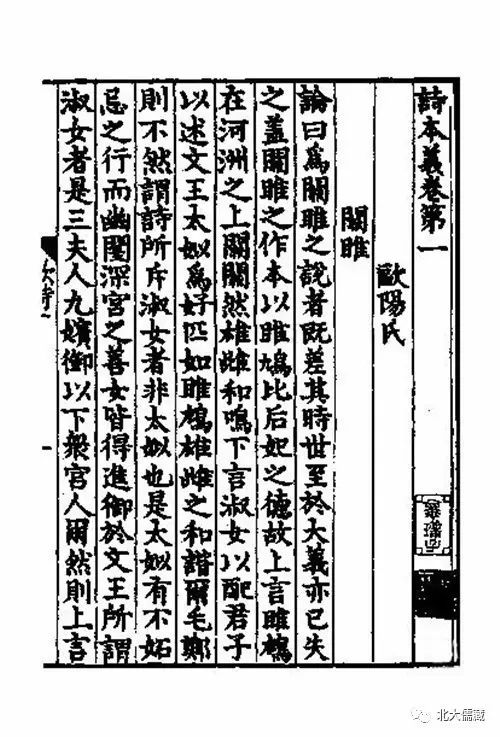 詩本義卷第一
歐陽氏
關雎
論曰為關雎之說者既差其時世至於大義亦已失
之蓋關雎之作本以雎鳩比后妃之德故上言雎鳩
在河洲之上關關然雄雌和鳴下言淑女以配君子
以述文王太姒為好匹如雎鳩雄雌之和諧爾毛鄭
則不然謂詩所斥淑女者非太姒也是太姒有不妬
忌之行而幽閨深宮之善女皆得進御於文王所謂
淑女者是三夫人九嬪御以下衆宮人爾然則上言
北大儒藏